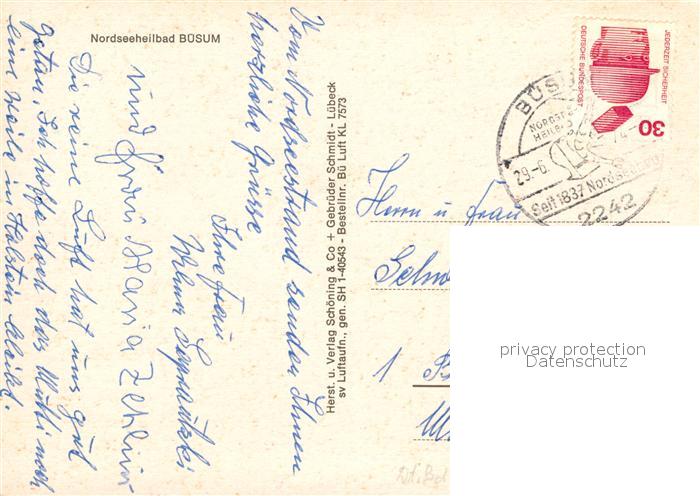 Nordseeheilbad BÜSUM
Vom Nordseestrand senden Ihnen
herzliche Grüsse
Ihre Frau
Wilma
und Frau Maria
Die reine Luft hat uns gut
getan. Ich hoffe doch das Mutti noch
eine weile in Holstein bleibt.
Herst. u. Verlag Schöning & Co + Gebrüder Schmidt - Lübeck
sv Luftaufn., gen. SH 1-40543 - Bestellnr. Bü Luft KL 7573
DEUTSCHE BUNDESPOST
JEDERZEIT SICHERHEIT
30
BÜSU
NORDSEE
HEILBAD
29.-6.
Seit 1837 Nordseebad
2242
Herrn u. Frau
1
privacy protection
Datenschutz